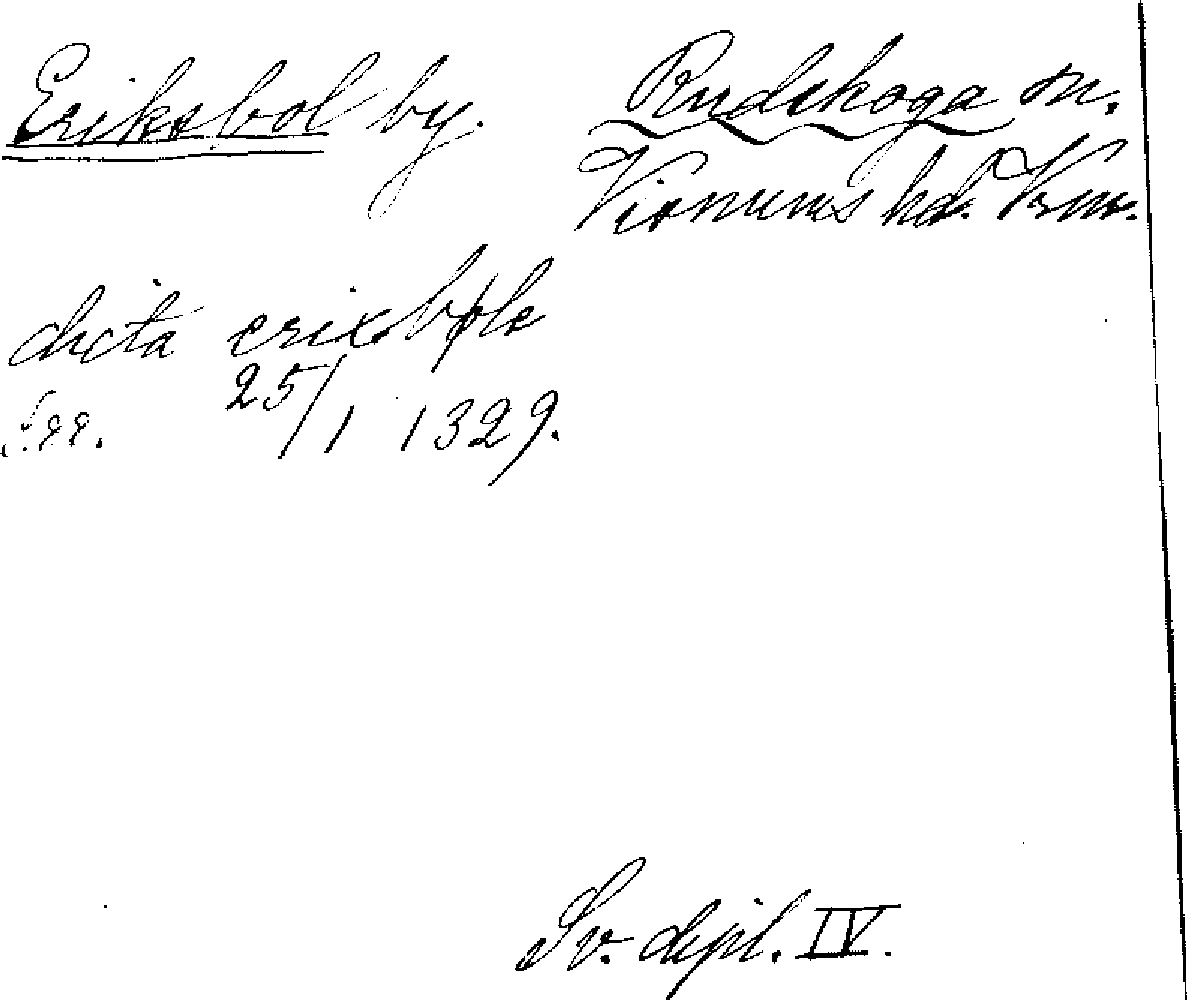 Eriksbol by. Rudskoga sn.
Visnums hd. Vrm.
dicta erixbøle
25/1 1329.
Sv. dipl. IV.